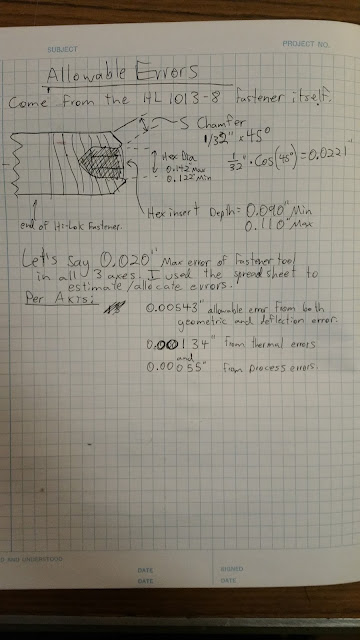 SUBJECT
PROJECT NO.
Allowable Errors
Come from the HL 1013-8 fastener itself.
S Chamfer
1/32" x 45°
1/32" · Cos(45°) = 0.0221"
Hex Dia
0.142 Max
0.122 Min
Hex insert Depth = 0.090" Min
0.110" Max
end of Hi-Lok Fastener.
Let's say 0.020" Max error of fastener tool
in all 3 axes. I used the spreadsheet to
estimate/allocate errors.
Per Axis:
0.00543" allowable error from both
geometric and deflection error.
0.00134" from thermal errors
and
0.00055" from process errors.
D AND UNDERSTOOD
DATE
SIGNED
DATE
DATE